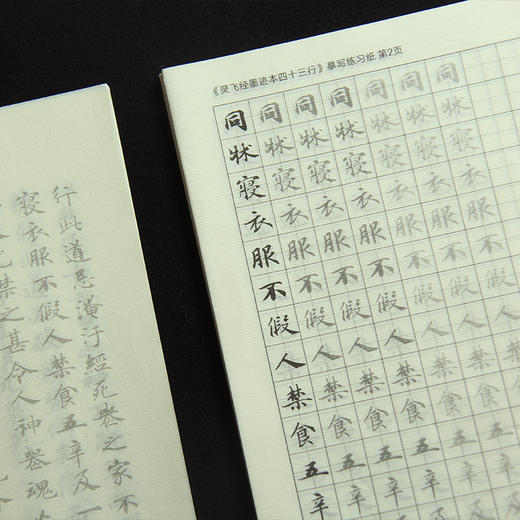 《灵飞经墨迹本四十三行》摹写练习纸 第2页
同同同同同同同
牀牀牀牀牀牀牀
寝寝寝寝寝寝寝
衣衣衣衣衣衣衣
服服服服服服服
不不不不不不不
假假假假假假假
人人人人人人人
禁禁禁禁禁禁禁
食食食食食食食
五五五五五五五
辛辛辛辛辛辛辛
行此道忌淹汙經死喪之家不
寝衣服不假人禁食五辛及一
禁之甚令人神喪魂